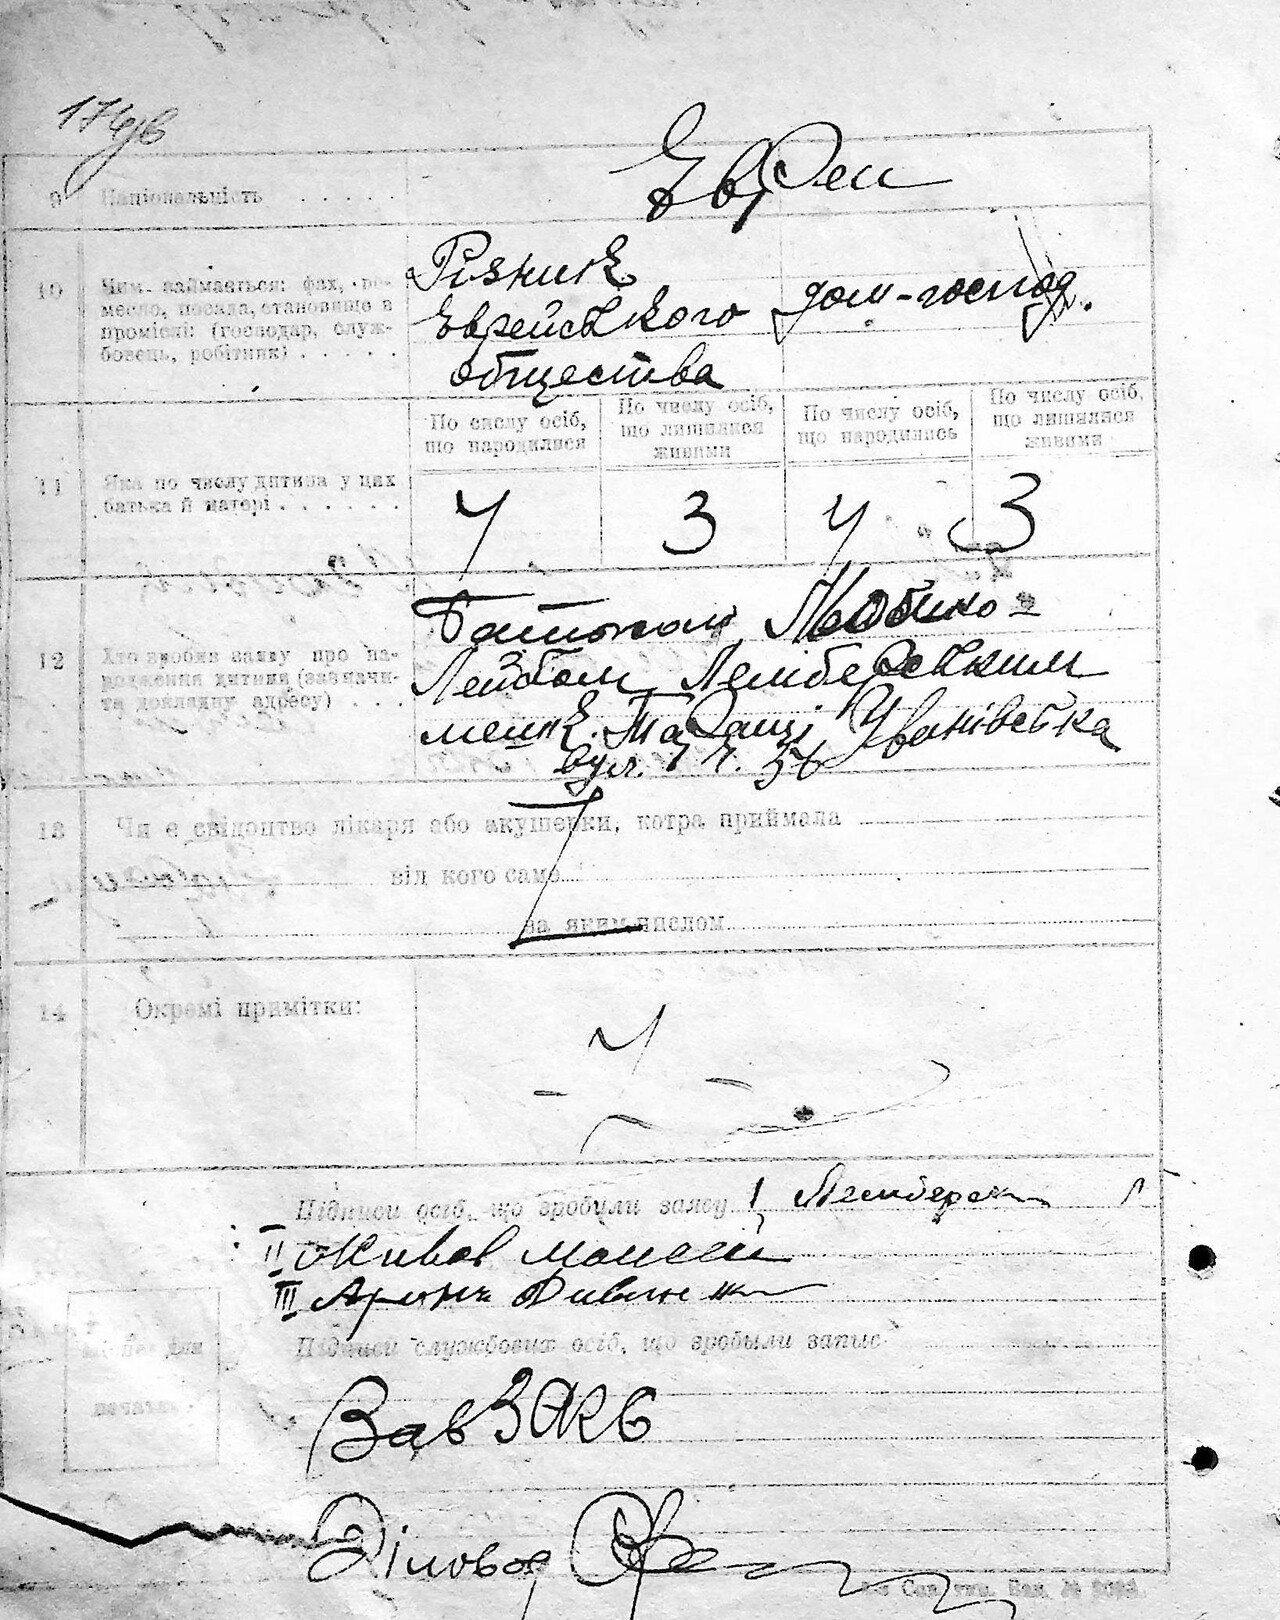 9 Національність . . . . .
Евреи
10 Чим займається: фах, ре-
месло, посада, становище в
промислі: (господар, служ-
бовець, робітник) . . . . .
Різник
Еврейського
общества
дом-господ.
По числу осіб,
що народилися
По числу осіб,
що лишилися
живими
По числу осіб,
що народились
По числу осіб,
що лишилися
живими
11 Яка по числу дитина у цих
батька й матері . . . . . .
4 3 4 3
12 Хто зробив заяву про на-
родження дитини (зазначи-
ти докладну адресу) . . .
Батьком
Лейбом Лемберським
мешк. Таращі Ивановська
вул. 36
13 Чи є свідоцтво лікаря або акушерки, котра приймала
від кого само
за яким числом
14 Окремі примітки:
Підписи осіб, що зробили заяву I Лемберски
II Живов Моисей
III Арон
Підписи службових осіб, що зробили запис
Зав ЗАГС
Діловод